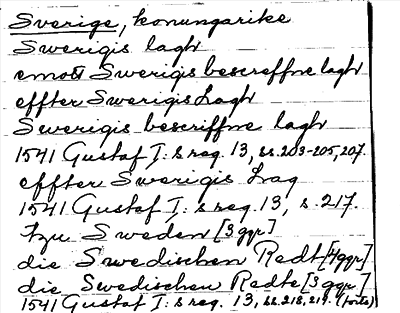 Sverige, konungarike
Swerigis lagh
emott Swerigis bescreffne lagh
effter Swerigis Lagh
Swerigis bescriffne lagh
1541 Gustaf I: s reg. 13, ss. 203-205, 207.
effter Swerigis Lag
1541 Gustaf I: s reg. 13, s. 217.
tzu Sweden [3 ggr]
die Swedischen Redt [4 ggr]
die Swedischen Redte [3 ggr]
1541 Gustaf I: s reg. 13, ss. 218, 219. (forts)